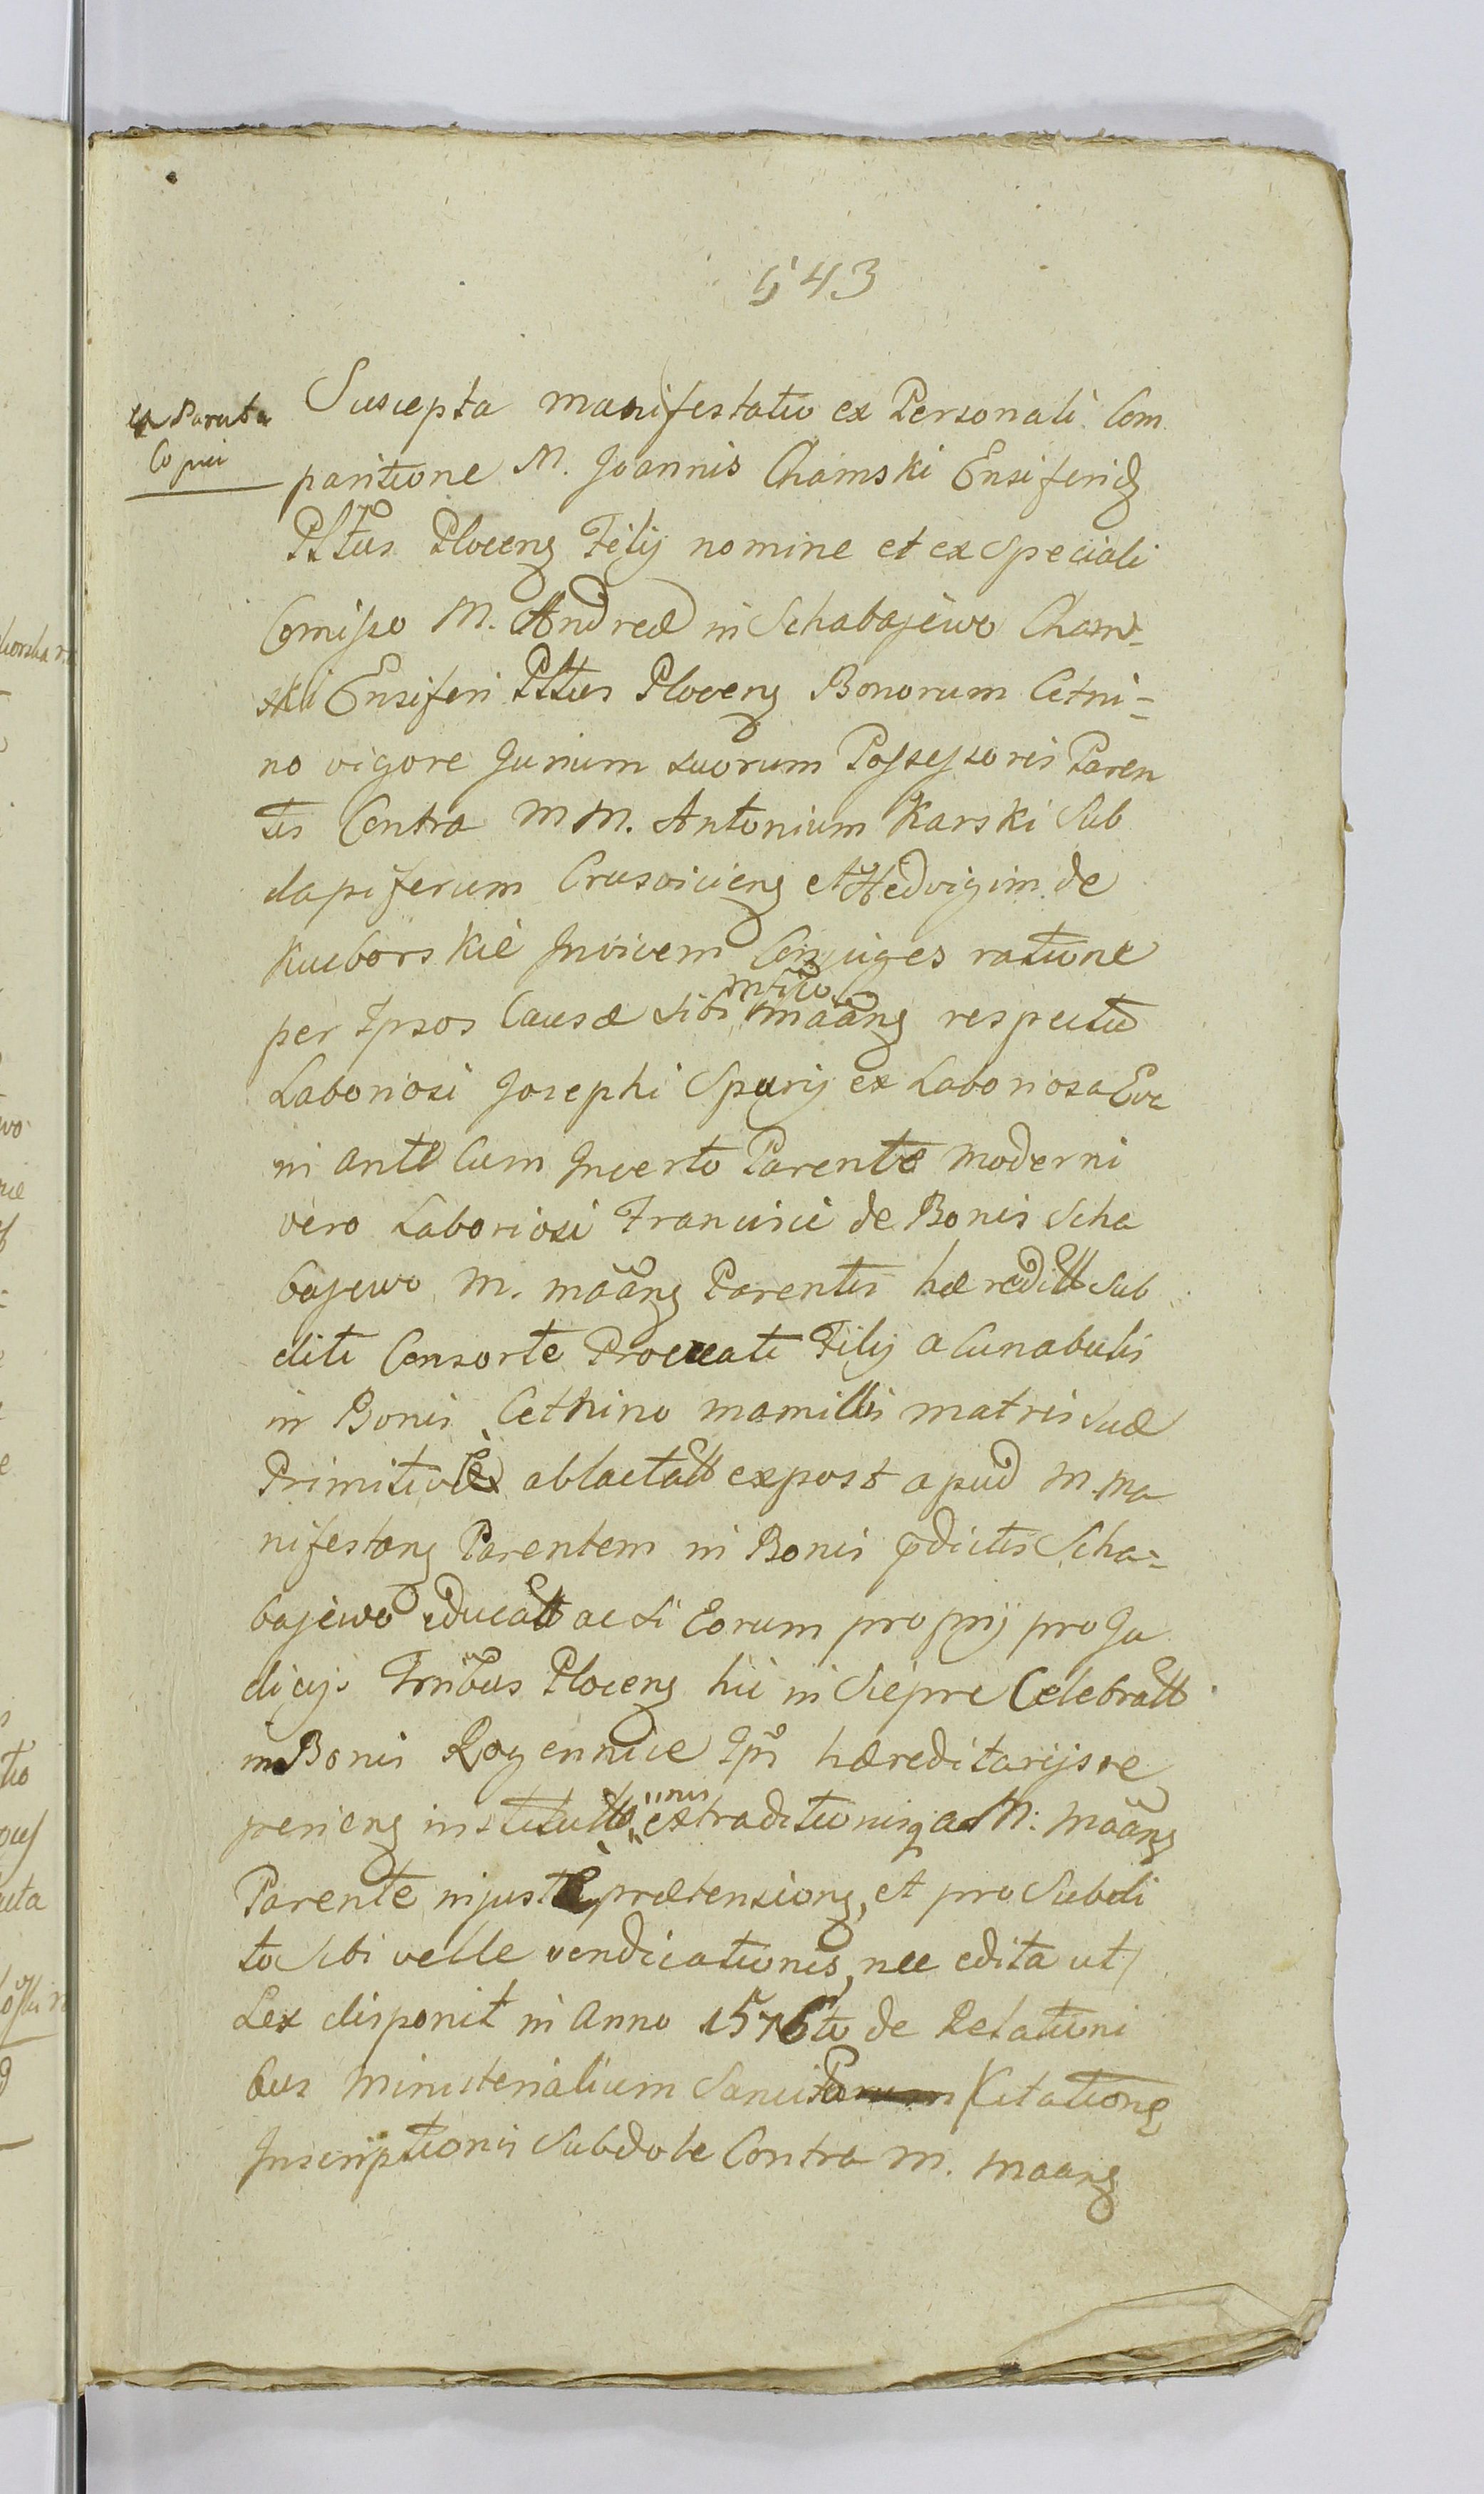 543
ex Paruta
Copia
Suscepta manifestatio ex Personali Com
paritione M. Joannis Chamski Ensiferidȝ
Plttus Plocenȝ Filij nomine et ex speciali
Comisso M. Andreæ in Schabajewo Cham-
ski Ensiferi Plttus Plocenȝ Bonorum Cetni=
no vigore Jurium suorum Possessoris Paren
tis Contra MM. Antonium Karski Sub
dapiferum Crusvicienȝ et Hedvigim de
Kucborskie Invicem Conjuges ratione
per Ipsos Causæ sibi maanȝ respectu
Laboriosi Josephi Spurij ex Laboriosa Eva
in ante Cum Incerto Parente moderni
vero Laboriosi Francisci de Bonis Scha
bajewo M. maanȝ Parentis hæreditt Sub
diti Consorte Procreati Filij a Cunabulis
in Bonis Cethino mamillis matris suæ
Primitivè ablactatt expost apud M. Ma
nifestanȝ Parentem in Bonis pdictis Scha=
bajewo educatt ac si Eorum proprij pro Ju
dicijs Trnbus Plocenȝ hic in Sieprc Celebratt
in Bonis Rozennice Ipsi hæreditarijs re
perienȝ institutt extraditionisq a M. maanȝ
Parente injustè prætensionȝ, et pro Subdi
to sibi velle vendicationis, nec edita ut
Lex disponit in Anno 1576to de Relationi
bus Ministerialium Sancita Citationȝ
Inscriptionis Subdole Contra M. maanȝ